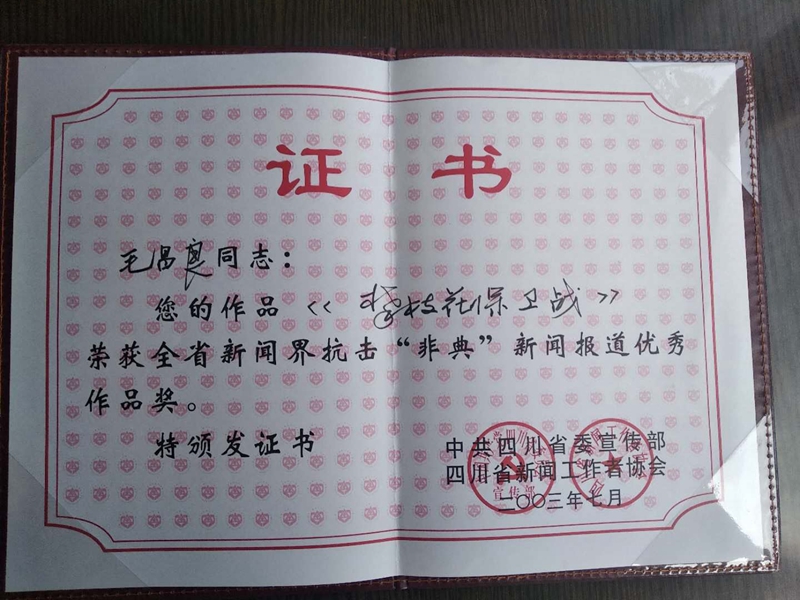 证书
毛昌良同志：
您的作品《攀枝花保卫战》
荣获全省新闻界抗击“非典”新闻报道优秀
作品奖。
特颁发证书
中共四川省委宣传部
四川省新闻工作者协会
二〇〇三年七月
宣传部